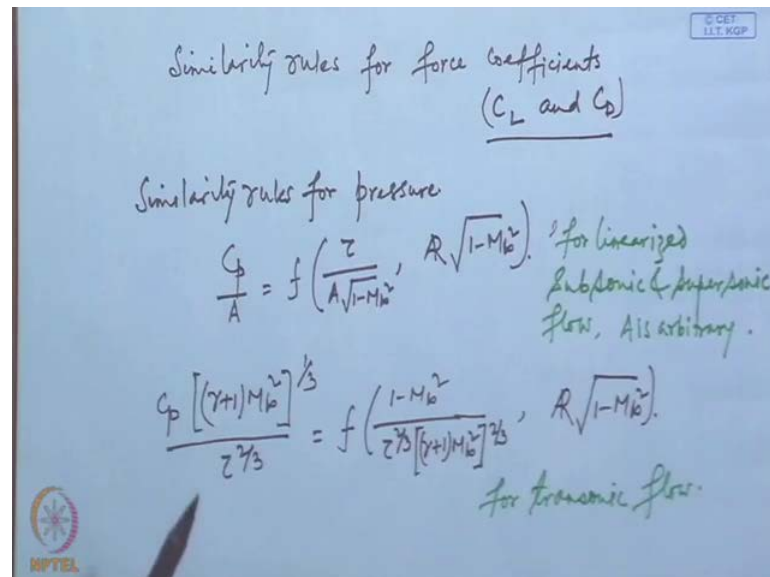 © CET
I.I.T. KGP
Similarity rules for force coefficients
(C_L and C_D)
Similarity rules for pressure
C_p/A = f(τ/(A√(1-M_∞²)), AR√(1-M_∞²)). for linearized
subsonic & supersonic
flow, A is arbitrary.
C_p[(γ+1)M_∞²]^(1/3)/τ^(2/3) = f((1-M_∞²)/(τ^(2/3)[(γ+1)M_∞²]^(2/3)), AR√(1-M_∞²)).
for transonic flow.
NPTEL